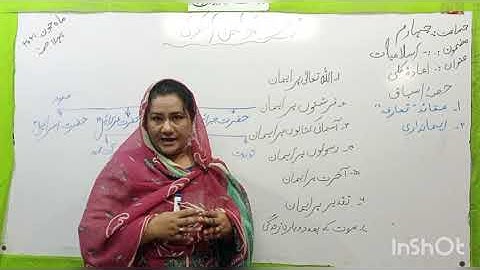 جماعت: چہارم
مضمون: اسلامیات
عنوان: اعادہ کلی
حصہ اسباق
۱۔ عقائد "تعارف"
۲۔ ایمانداری
ماہ جون ۲۰۲۱
پہلا حصہ
۱۔ اللہ تعالیٰ پر ایمان
۲۔ فرشتوں پر ایمان
۳۔ آسمانی کتابوں پر ایمان
۴۔ رسولوں پر ایمان
۵۔ آخرت پر ایمان
۶۔ تقدیر پر ایمان
۷۔ موت کے بعد دوبارہ زندگی
صور
حضرت اسرافیل
حضرت عزرائیل
حضرت
InShOt